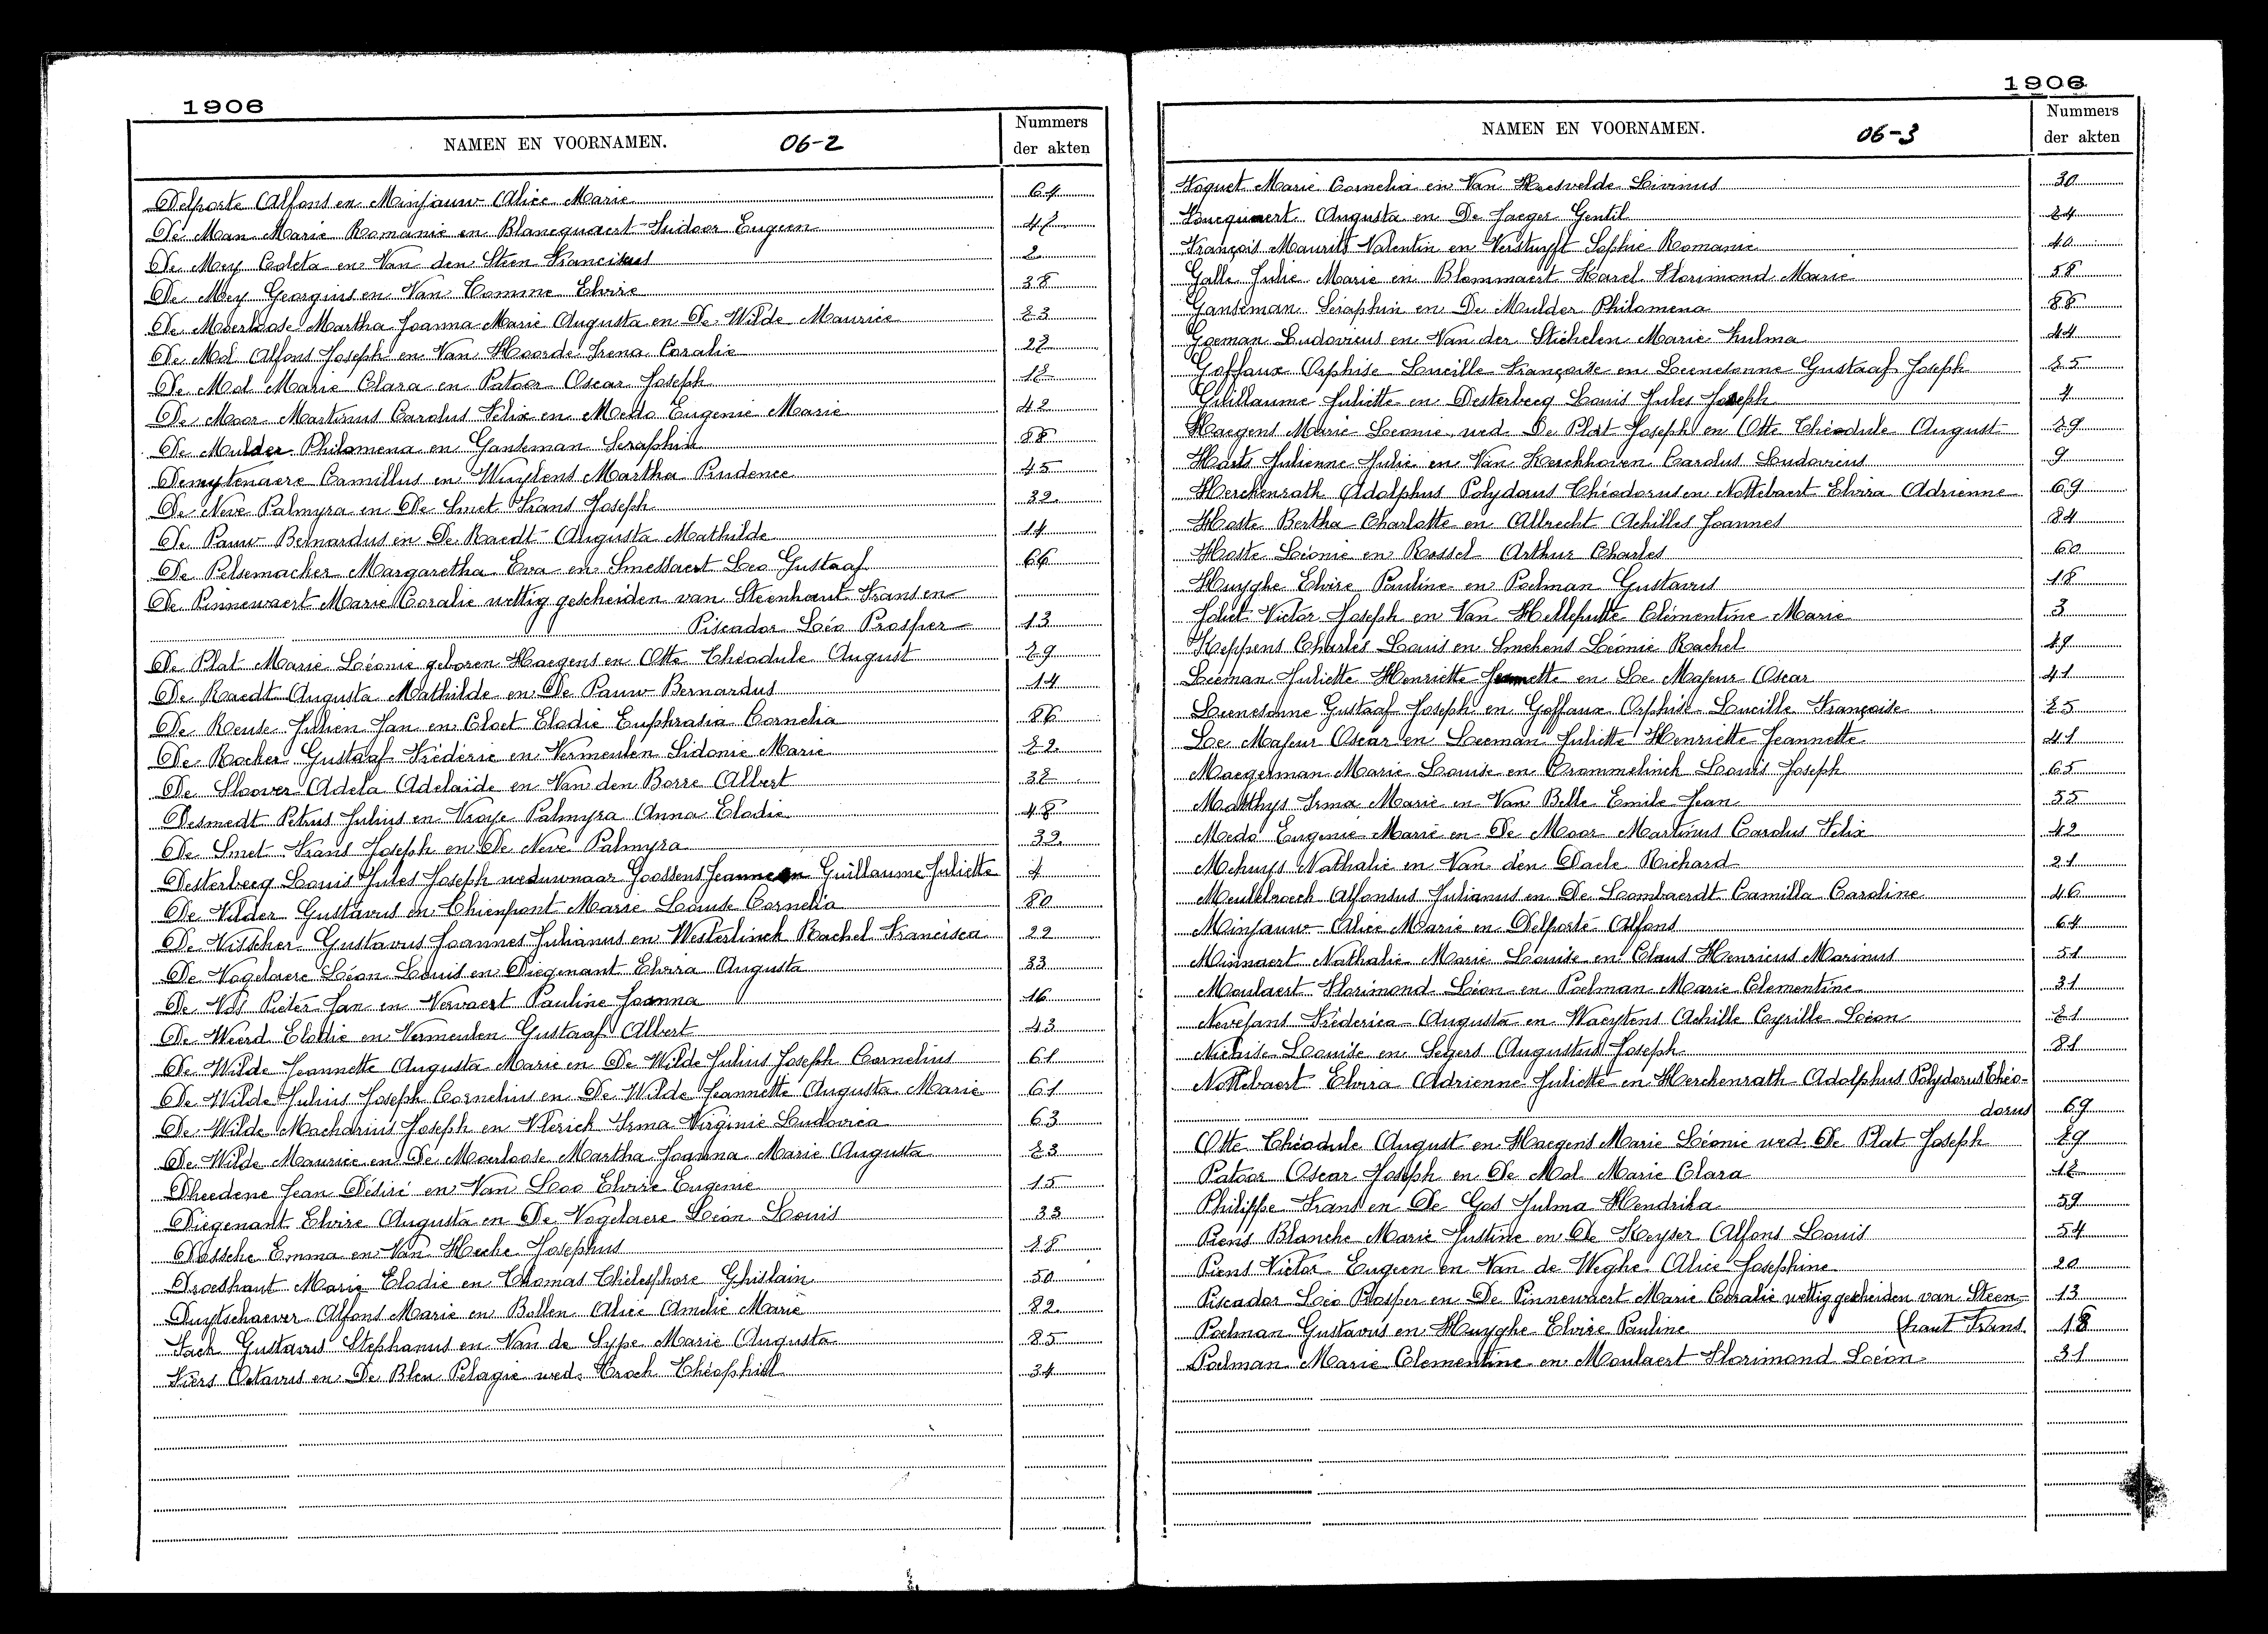 1906
NAMEN EN VOORNAMEN. 06-2 Nummers der akten
Delporte Alfons en Minjauw Alice Marie 64
De Man Marie Romanie en Blancquaert Isidoor Eugeen 47
De Mey Coleta en Van den Steen Franciscus 2
De Mey Georgius en Van Comme Elvire 38
De Moerloose Martha Joanna Marie Augusta en De Wilde Maurice 73
De Mol Alfons Joseph en Van Hoorde Irena Coralie 27
De Mol Marie Clara en Patoor Oscar Joseph 17
De Moor Martinus Carolus Felix en Medo Eugenie Marie 42
De Mulder Philomena en Ganseman Seraphin 88
Demeytenaere Camillus en Wuytens Martha Prudence 45
De Neve Palmyra en De Smet Frans Joseph 32
De Pauw Bernardus en De Raedt Augusta Mathilde 14
De Pelsemacher Margaretha Eva en Smessaert Leo Gustaaf 66
De Pinnewaert Marie Coralie wettig gescheiden van Steenhaut Frans en
Piscador Léo Prosper 13
De Plat Marie Léonie geboren Haegens en Otte Théodule August 79
De Raedt Augusta Mathilde en De Pauw Bernardus 14
De Reuse Julien Jan en Cloet Elodie Euphrasia Cornelia 86
De Rocker Gustaaf Fréderic en Vermeulen Sidonie Marie 72
De Sloover Adela Adelaide en Van den Borre Albert 37
Desmedt Petrus Julius en Vroye Palmyra Anna Elodie 48
De Smet Frans Joseph en De Neve Palmyra 32
Desterbecq Louis Jules Joseph weduwnaar Goossens Jeanne en Guillaume Juliette 4
De Vilder Gustavus en Thienpont Marie Louise Cornelia 80
De Visscher Gustavus Joannes Julianus en Westerlinck Rachel Francisca 22
De Vogelaere Léon Louis en Diegenant Elvira Augusta 33
De Vos Pieter Jan en Vervaert Pauline Joanna 16
De Weerd Elodie en Vermeulen Gustaaf Albert 43
De Wilde Jeannette Augusta Marie en De Wilde Julius Joseph Cornelius 61
De Wilde Julius Joseph Cornelius en De Wilde Jeannette Augusta Marie 61
De Wilde Macharius Joseph en Vlerick Irma Virginie Ludovica 63
De Wilde Maurice en De Moerloose Martha Joanna Marie Augusta 73
Dheedene Jean Désiré en Van Loo Elvire Eugenie 15
Diegenant Elvire Augusta en De Vogelaere Léon Louis 33
Dossche Emma en Van Hecke Josephus 78
Droeshaut Marie Elodie en Thomas Thélesphore Ghislain 50
Duytschaever Alfons Marie en Bollen Alice Amelie Marie 82
Fack Gustavus Stephanus en Van de Sype Marie Augusta 85
Fiers Octavus en De Bleu Pelagie wed. Troch Théophiel 34
1906
NAMEN EN VOORNAMEN. 06-3 Nummers der akten
Foquet Marie Cornelia en Van Hoesvelde Livinus 30
Foucquaert Augusta en De Jaeger Gentil 74
François Maurits Valentin en Verstuyft Sophie Romanie 40
Galle Julie Marie en Blommaert Karel Florimond Marie 58
Ganseman Seraphin en De Mulder Philomena 88
Goeman Ludovicus en Van der Stichelen Marie Zulma 44
Goffaux Orphise Lucille Françoise en Leenesonne Gustaaf Joseph 75
Guillaume Juliette en Desterbecq Louis Jules Joseph 4
Haegens Marie Leonie wed. De Plat Joseph en Otte Théodule August 79
Harts Julienne Julie en Van Kerckhoven Carolus Ludovicus 9
Herckenrath Adolphus Polydorus Théodorus en Nottebaert Elvira Adrienne 69
Hoste Bertha Charlotte en Albrecht Achilles Joannes 84
Hoste Léonie en Rossel Arthur Charles 60
Huyghe Elvire Pauline en Poelman Gustavus 18
Joliet Victor Joseph en Van Helleputte Clémentine Marie 3
Keppens Charles Louis en Smekens Léonie Rachel 49
Leeman Juliette Henriette Jeannette en Le Majeur Oscar 41
Leenesonne Gustaaf Joseph en Goffaux Orphise Lucille Françoise 75
Le Majeur Oscar en Leeman Juliette Henriette Jeannette 41
Maegerman Marie Louise en Crommelinck Louis Joseph 65
Matthys Irma Marie en Van Belle Emile Jean 55
Medo Eugenie Marie en De Moor Martinus Carolus Felix 42
Mehuys Nathalie en Van den Daele Richard 21
Meulebroeck Alfonsus Julianus en De Lombaerdt Camilla Caroline 46
Minjauw Alice Marie en Delporte Alfons 64
Minnaert Nathalie Marie Louise en Claus Henricus Marinus 51
Moulaert Florimond Léon en Poelman Marie Clementine 31
Nevejans Fréderica Augusta en Waeytens Achille Cyrille Léon 71
Nichise Louise en Segers Augustus Joseph 81
Nottebaert Elvira Adrienne Juliette en Herckenrath Adolphus Polydorus Théo-
dorus 69
Otte Théodule August en Haegens Marie Léonie wed. De Plat Joseph 79
Patoor Oscar Joseph en De Mol Marie Clara 17
Philippe Frans en De Gos Julma Hendrika 59
Piens Blanche Marie Justine en De Keyser Alfons Louis 54
Piens Victor Eugeen en Van de Weghe Alice Josephine 20
Piscador Léo Prosper en De Pinnewaert Marie Coralie wettig gescheiden van Steen- 13
Poelman Gustavus en Huyghe Elvire Pauline (haut Frans. 18
Poelman Marie Clementine en Moulaert Florimond Léon 31